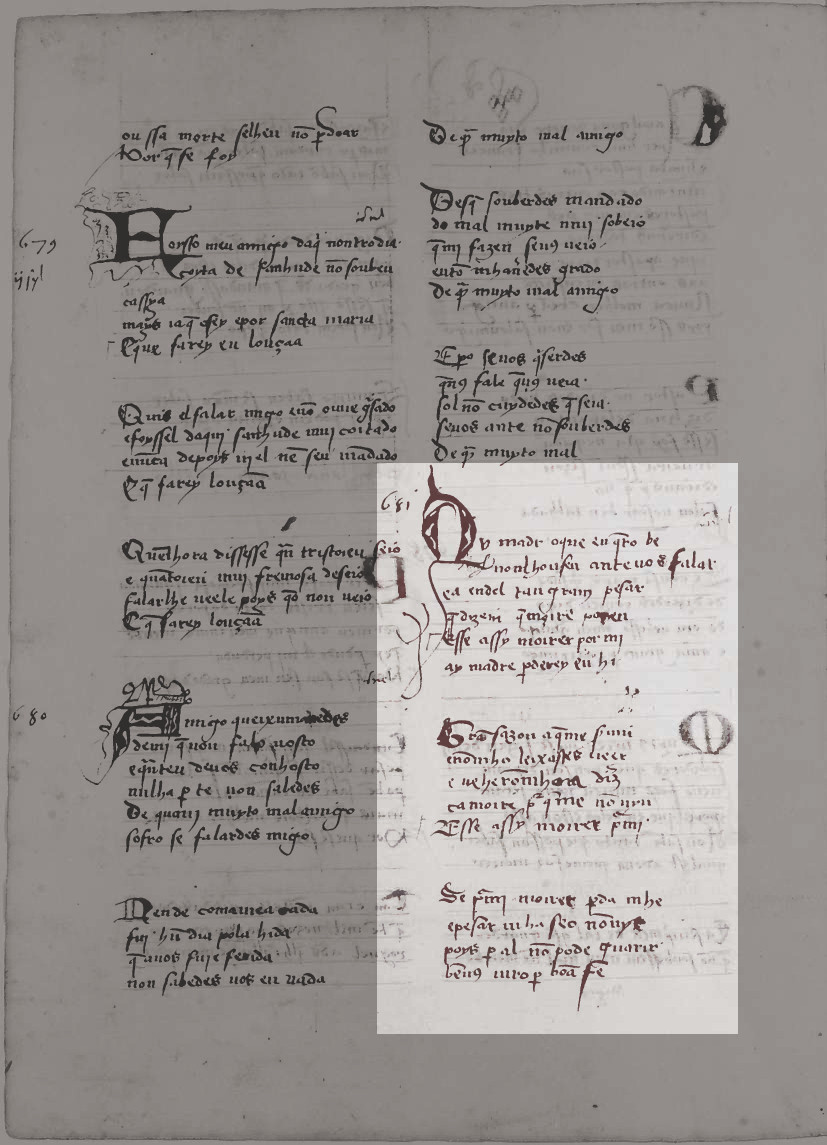 ou ssa morte selheu nō ꝑdoar
Por q̄ se foy
679
Foysso meu amigo daq̄ nontrodia
coyta de sanhude nō souben
cassya
mays iaq̄ osey epor sancta maria
E que farey eu louçaa
Quis el falar migo enō ouue gsado
efoyssel daqui sanhude mui coitado
enūca depoys ui el nē seu mādado
E q̄ farey louçaā
Quēlhora dissesse q̄n tristoieu seio
e quātoieu mui fremosa deseio
falarlhe ueele poys q̄o non ueio
E q̄ farey louçaā
680
Amigo queixumauedes
demi q̄ non falo uosco
eq̄nteu deuos conhosco
nulha ꝑte non sabedes
De quam muyto mal amigo
sofro se falardes migo
Nende comameacada
fui hū dia pola hida
q̄ auos fui e ferida
non sabedes uos en nada
De q̄ muyto mal amigo
Desq̄ souberdes mandado
do mal muyte mui sobeio
q̄mi fazen seus ueio
entō mhauedes grado
De q̄ muyto mal amigo
E pō seuos q̄serdes
q̄uꝯ fale q̄uꝯ ueia
sol nō cuydedes q̄ seia
seuos ante nō souberdes
De q̄ muyto mal
681
Oy madr oque eu q̄ro be
non lhousen anteuos falar
ea endel tan gram pesar
q̄ dizem q̄ moire poren
E sse assy moirer por mi
ay madre ꝑderey eu hi
Gran sazon aq̄me seruiu
enō mho leixastes ueer
e ueherōmhora diz̄
ca moire ꝑq̄ me nō uyu
E sse assy moirer ꝑmi
Se ꝑmi moirer ꝑda mhe
epesar mha seo nōuyr
poys ꝑ al nō pode guarir
benuꝯ iuro ꝑ boā fe